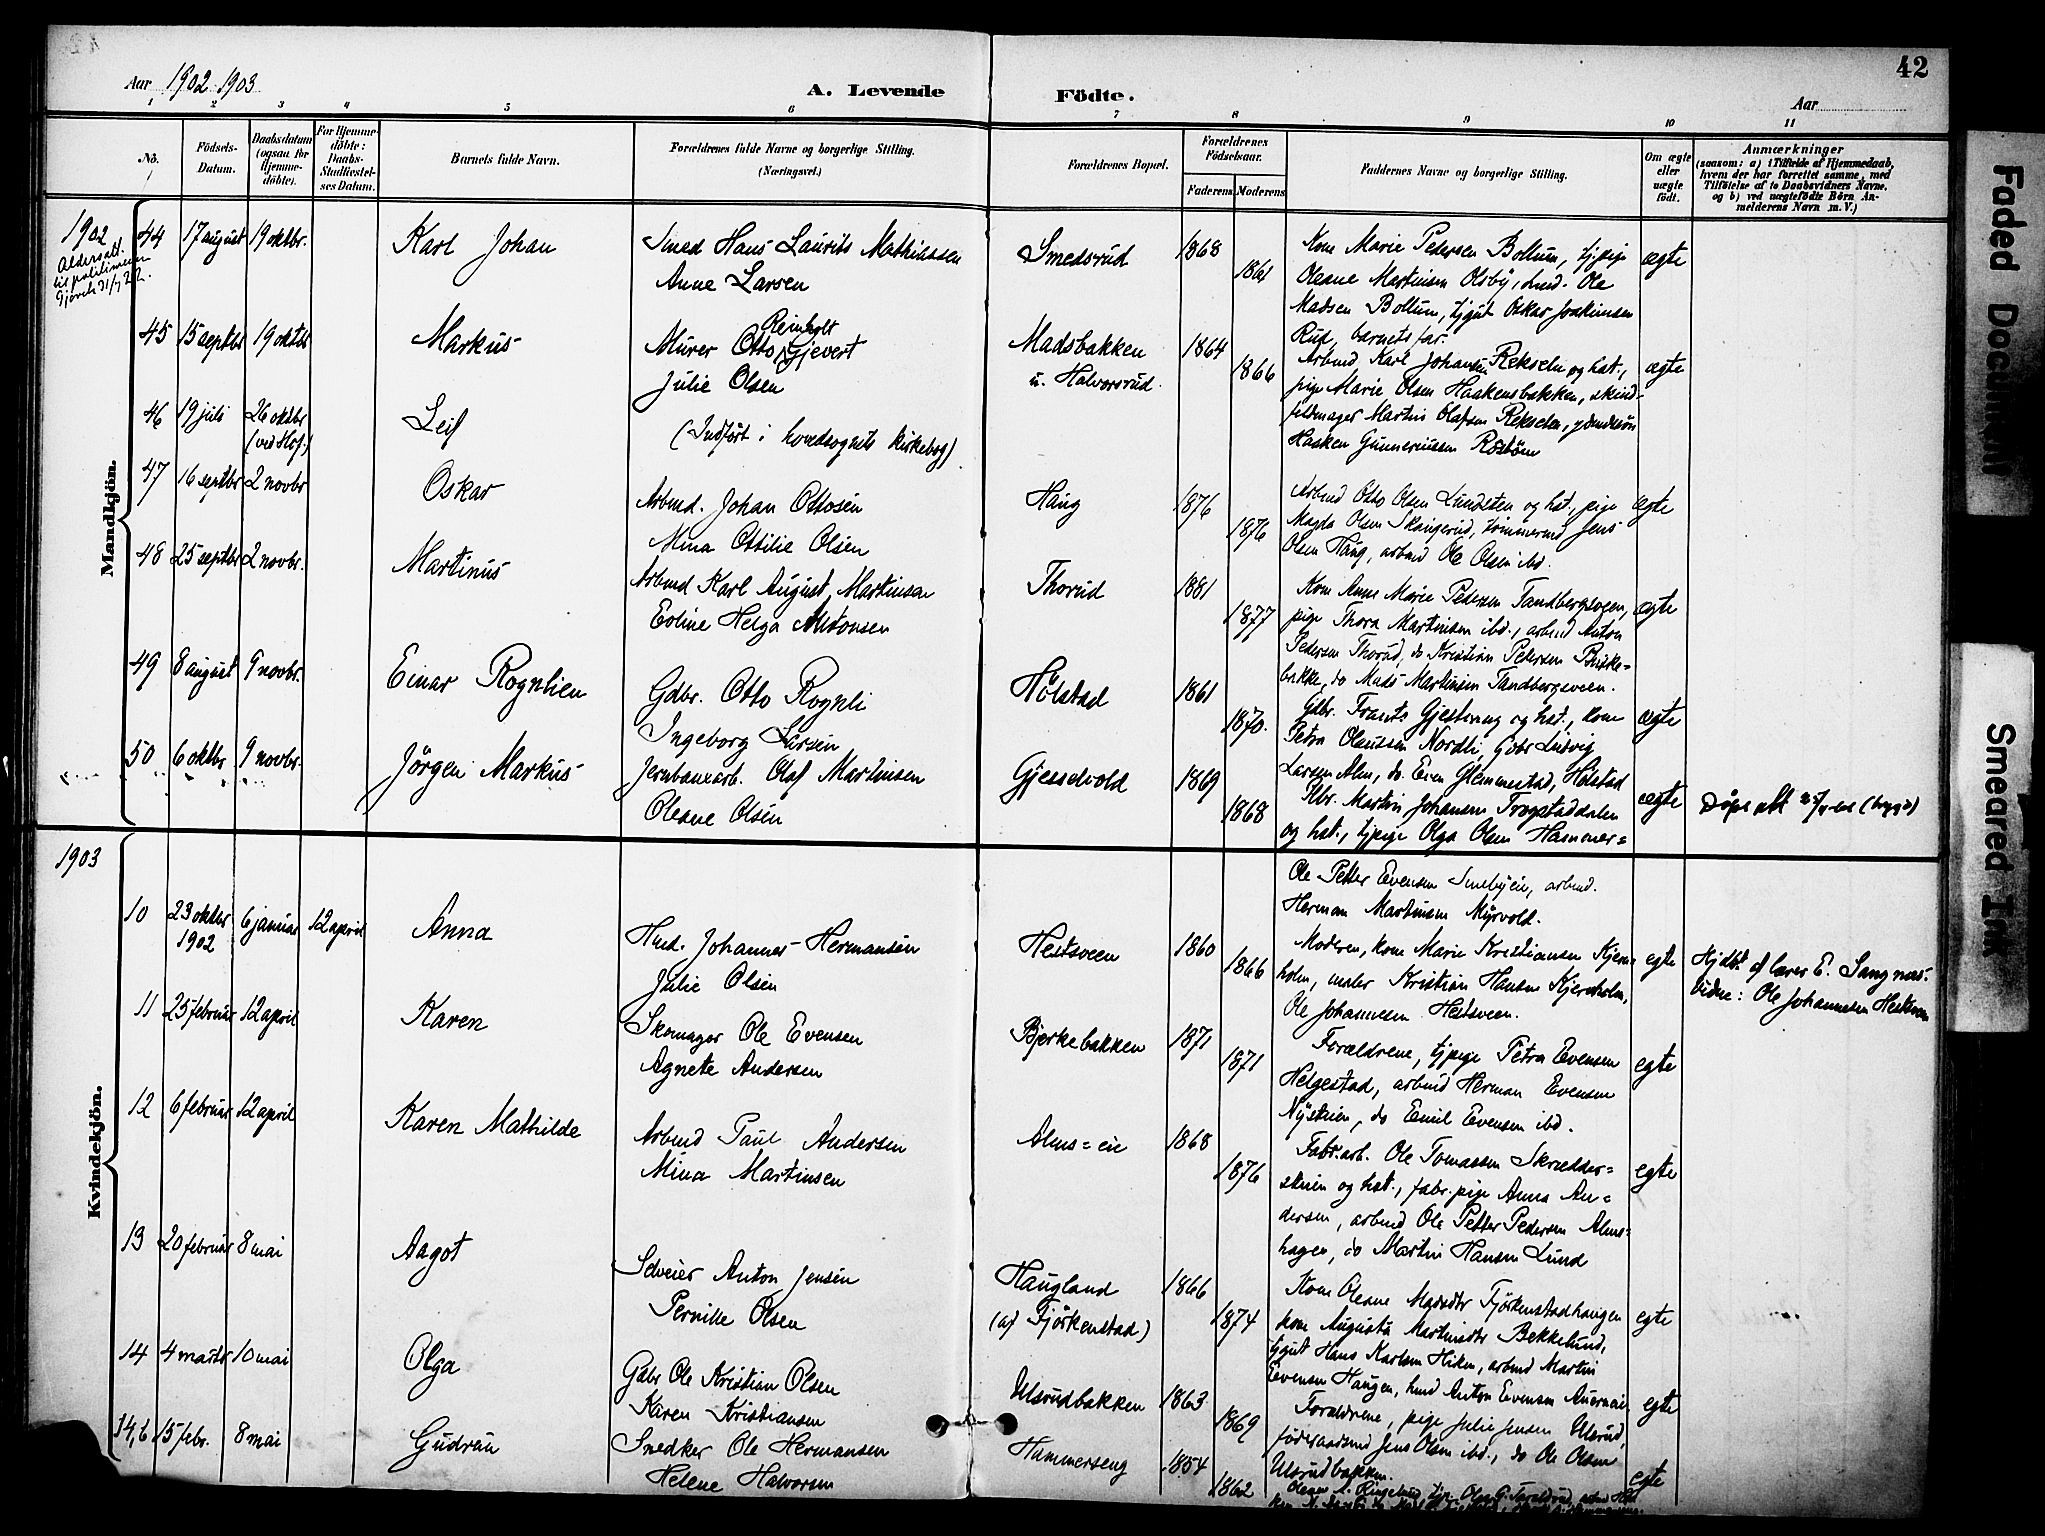 42
Aar 1902 1903
A. Levende Födte.
Aar
1 2 3 4 5 6 7 8 9 10 11
No.
Födsels-Datum.
Daabsdatum (ogsaa for Hjemme-döbte).
For Hjemme-döbte: Daabs-Stadfæstel-ses Datum.
Barnets fulde Navn.
Forældrenes fulde Navne og borgerlige Stilling.
(Næringsvei.)
Forældrenes Bopæl.
Forældrenes Födselsaar.
Faderens Moderens
Faddernes Navne og borgerlige Stilling.
Om ægte eller uægte födt.
Anmærkninger
(saasom: a) i Tilfælde af Hjemmedaab,
hvem der har forrettet samme, med
Tilföielse af to Daabsvidners Navne,
og b) ved uægtefödte Börn An-
melderens Navn m. V.)
Mandkjön.
1902
Aldersatt.
til politimester
Gjøvik 31/7 22.
44 17 august 19 oktbr. Karl Johan
Smed Hans Laurits Mathiassen
Anne Larsen
Smedsrud 1868 1861
Kone Marie Pedersen Bollum, tj.pige
Oleane Martinsen Olsby, hmd. Ole
Madsen Bollum, tjgut Oskar Joakimsen
Rud, barnets far.
ægte
45 15 septbr 19 oktbr Markus
Murer Otto Reinholt Gjevert
Julie Olsen
Madsbakken
u. Halvorsrud
1864 1866
Arbmd Karl Johansen Rekselen og hst.,
pige Marie Olsen Haakensbakken, skind-
feldmager Martin Olafsen Rekselen,
Haaken Gunneriussen
ægte
46 19 juli 26 oktbr (ved Hof.) Leif
(Indført i hovedsognets kirkebog)
47 16 septbr 2 novbr Oskar
Arbmd. Johan Ottosen
Mina Ottilie Olsen
Haug 1876 1876
Arbmd Otto Olsen Lundsten og hst., pige
Magda Olsen Skangerud, tømmermd Jens
Olsen Haug, arbmd Ole Olsen ibd.
ægte
48 25 septbr 2 novbr. Martinus
Arbmd Karl August Martinsen
Eoline Helga Antonsen
Thorud 1881 1877
Kone Anne Marie Pedersen Tandbergsveen,
pige Thora Martinsen ibd., arbmd Anton
Pedersen Thorud, do Kristian Pedersen Buske-
bakke, do Mads Martinsen Tandbergsveen.
ægte
49 8 august 9 novbr. Einar Rognlien
Gdbr. Otto Rognli
Ingeborg Larsen
Hølstad 1861 1870.
Gdbr. Frants Gjestvang og hst., kone
Petra Olaussen Nordli, Gdbr Ludvig
Larsen Alm, do. Even Glemmestad, Hølstad
ægte
50 6 oktbr 9 novbr. Jörgen Markus
Jernbanearb. Olaf Martinsen
Oleane Olsen
Gjessedvold 1869 1868
Kbr. Martin Johansen Frogstaddalen
og hst., tjpige Olga Olsen Hammer=
ægte
Döpe att (bryg)
Kvindekjön.
1903
Ole Petter Evensen Smebyeie, arbmd.
Herman Martinsen Myrvold.
10 23 oktbr 1902 6 januar 12 april Anna
Hmd. Johannes Hermansen
Julie Olsen
Hestsveen 1860 1866
Moderen, kone Marie Kristiansen Kjern-
holm, maler Kristian Hansen Kjernholm,
Ole Johannesen Hestsveen.
egte
Hjdbt af lærer E. Sangnæs.
Vidne: Ole Johannesen Hestsveen
11 25 februar 12 april Karen
Skomager Ole Evensen
Agnete Andersen
Bjerkebakken 1871 1871
Forældrene, tjpige Petra Evensen
Helgestad, arbmd Herman Evensen
Nystuen, do Emil Evensen ibd.
egte
12 6 februar 12 april Karen Mathilde
Arbmd Paul Andersen
Mina Martinsen
Alms=eie 1868 1876
Fabr.arb. Ole Tomassen Skrædder=
stuen og hst., fabr.pige Anna An=
dersen, arbmd Ole Petter Pedersen Alms-
hagen, do Martin Hansen Lund
egte
13 20 februar 8 mai Aagot
Selveier Anton Jensen
Pernille Olsen
Haugland
(af Fjörkenstad)
1866 1874
Kone Oleane Madsdtr Fjörkenstadhaugen
kone Augusta Martinsdtr Bekkelund,
tjgut Hans Karlsen Hiken, arbmd Martin
Evensen Haugen, hmd Anton Evensen
egte
14 4 marts 10 mai Olga
Gdbr Ole Kristian Olsen
Karen Kristiansen
Ulsrudbakken 1863 1869
Forældrene, pige Julie Jensen Ulsrud,
födergaardsmd Jens Olsen ibd., do Ole Olsen
Ulsrudbakken.
egte
14,b 15 febr. 8 mai Gudrun
Snedker Ole Hermansen
Helene Halvorsen
Hammerseng 1854 1862
egte
Faded Document
Smeared Ink